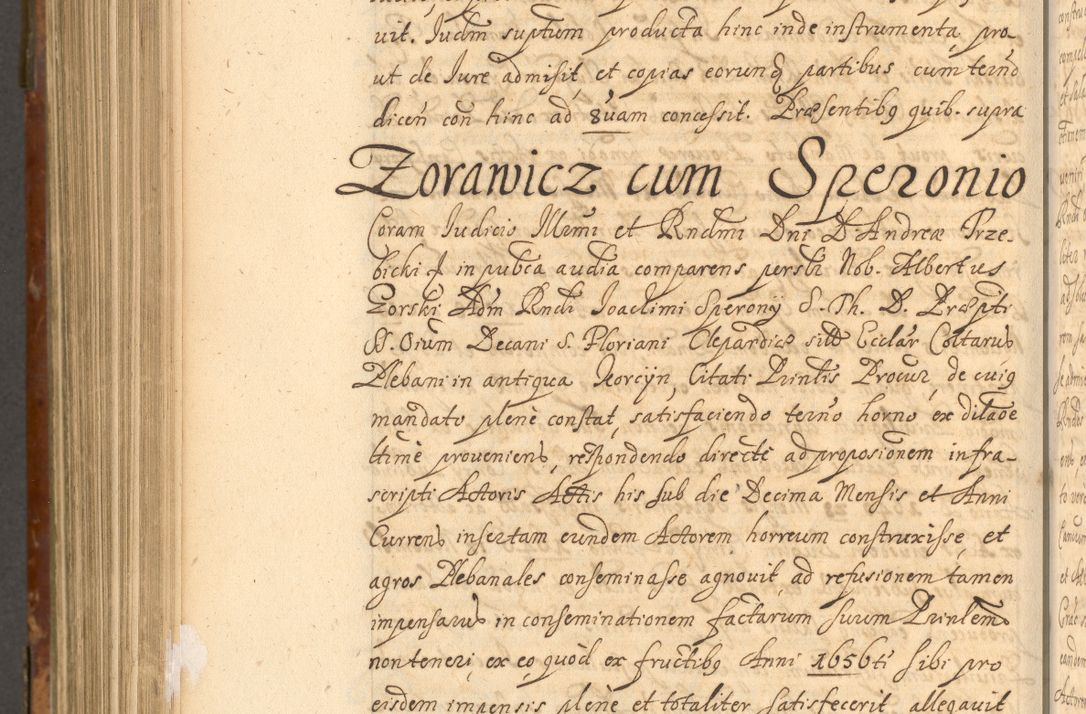 vit. Judm suptum producta hinc inde instrumenta, pro-
ut de Jure admisit, et copias eorund partibus cum teino
dicen con hinc ad 8uam concessit. Præsentibq quib. supra
Zorawicz cum Speronio
Coram Judicio Illrmi et Rndmi Dni D. Andreæ Trze-
bicki in pubca audia comparens persl Nob. Albertus
Gorski Adm Rndi Joachimi Sperony S. Th. D. Præpti
SS. Oium Decani S. Floriani Clepardiæ Ecclar Coltarus
Plebani in antiqua Citati Prinlis Procur, de cuiq
mandato plenè constat, satisfaciendo teino horno, ex dilaoe
ltimè proveniens, respondendo directè ad proposionem infra-
scripti Actoris Actis his sub die Decima Mensis et Anni
Currens insertam eundem Actorem horreum construxisse, et
agros Plebanales conseminasse agnovit, ad refusionem tamen
impensarus in conseminationem factarum suum Prinlem
non teneri, ex eo, quòd ex fructibq Anni 1656ti sibi pro
eisdem impensis plenè et totaliter satisfecerit allegavit